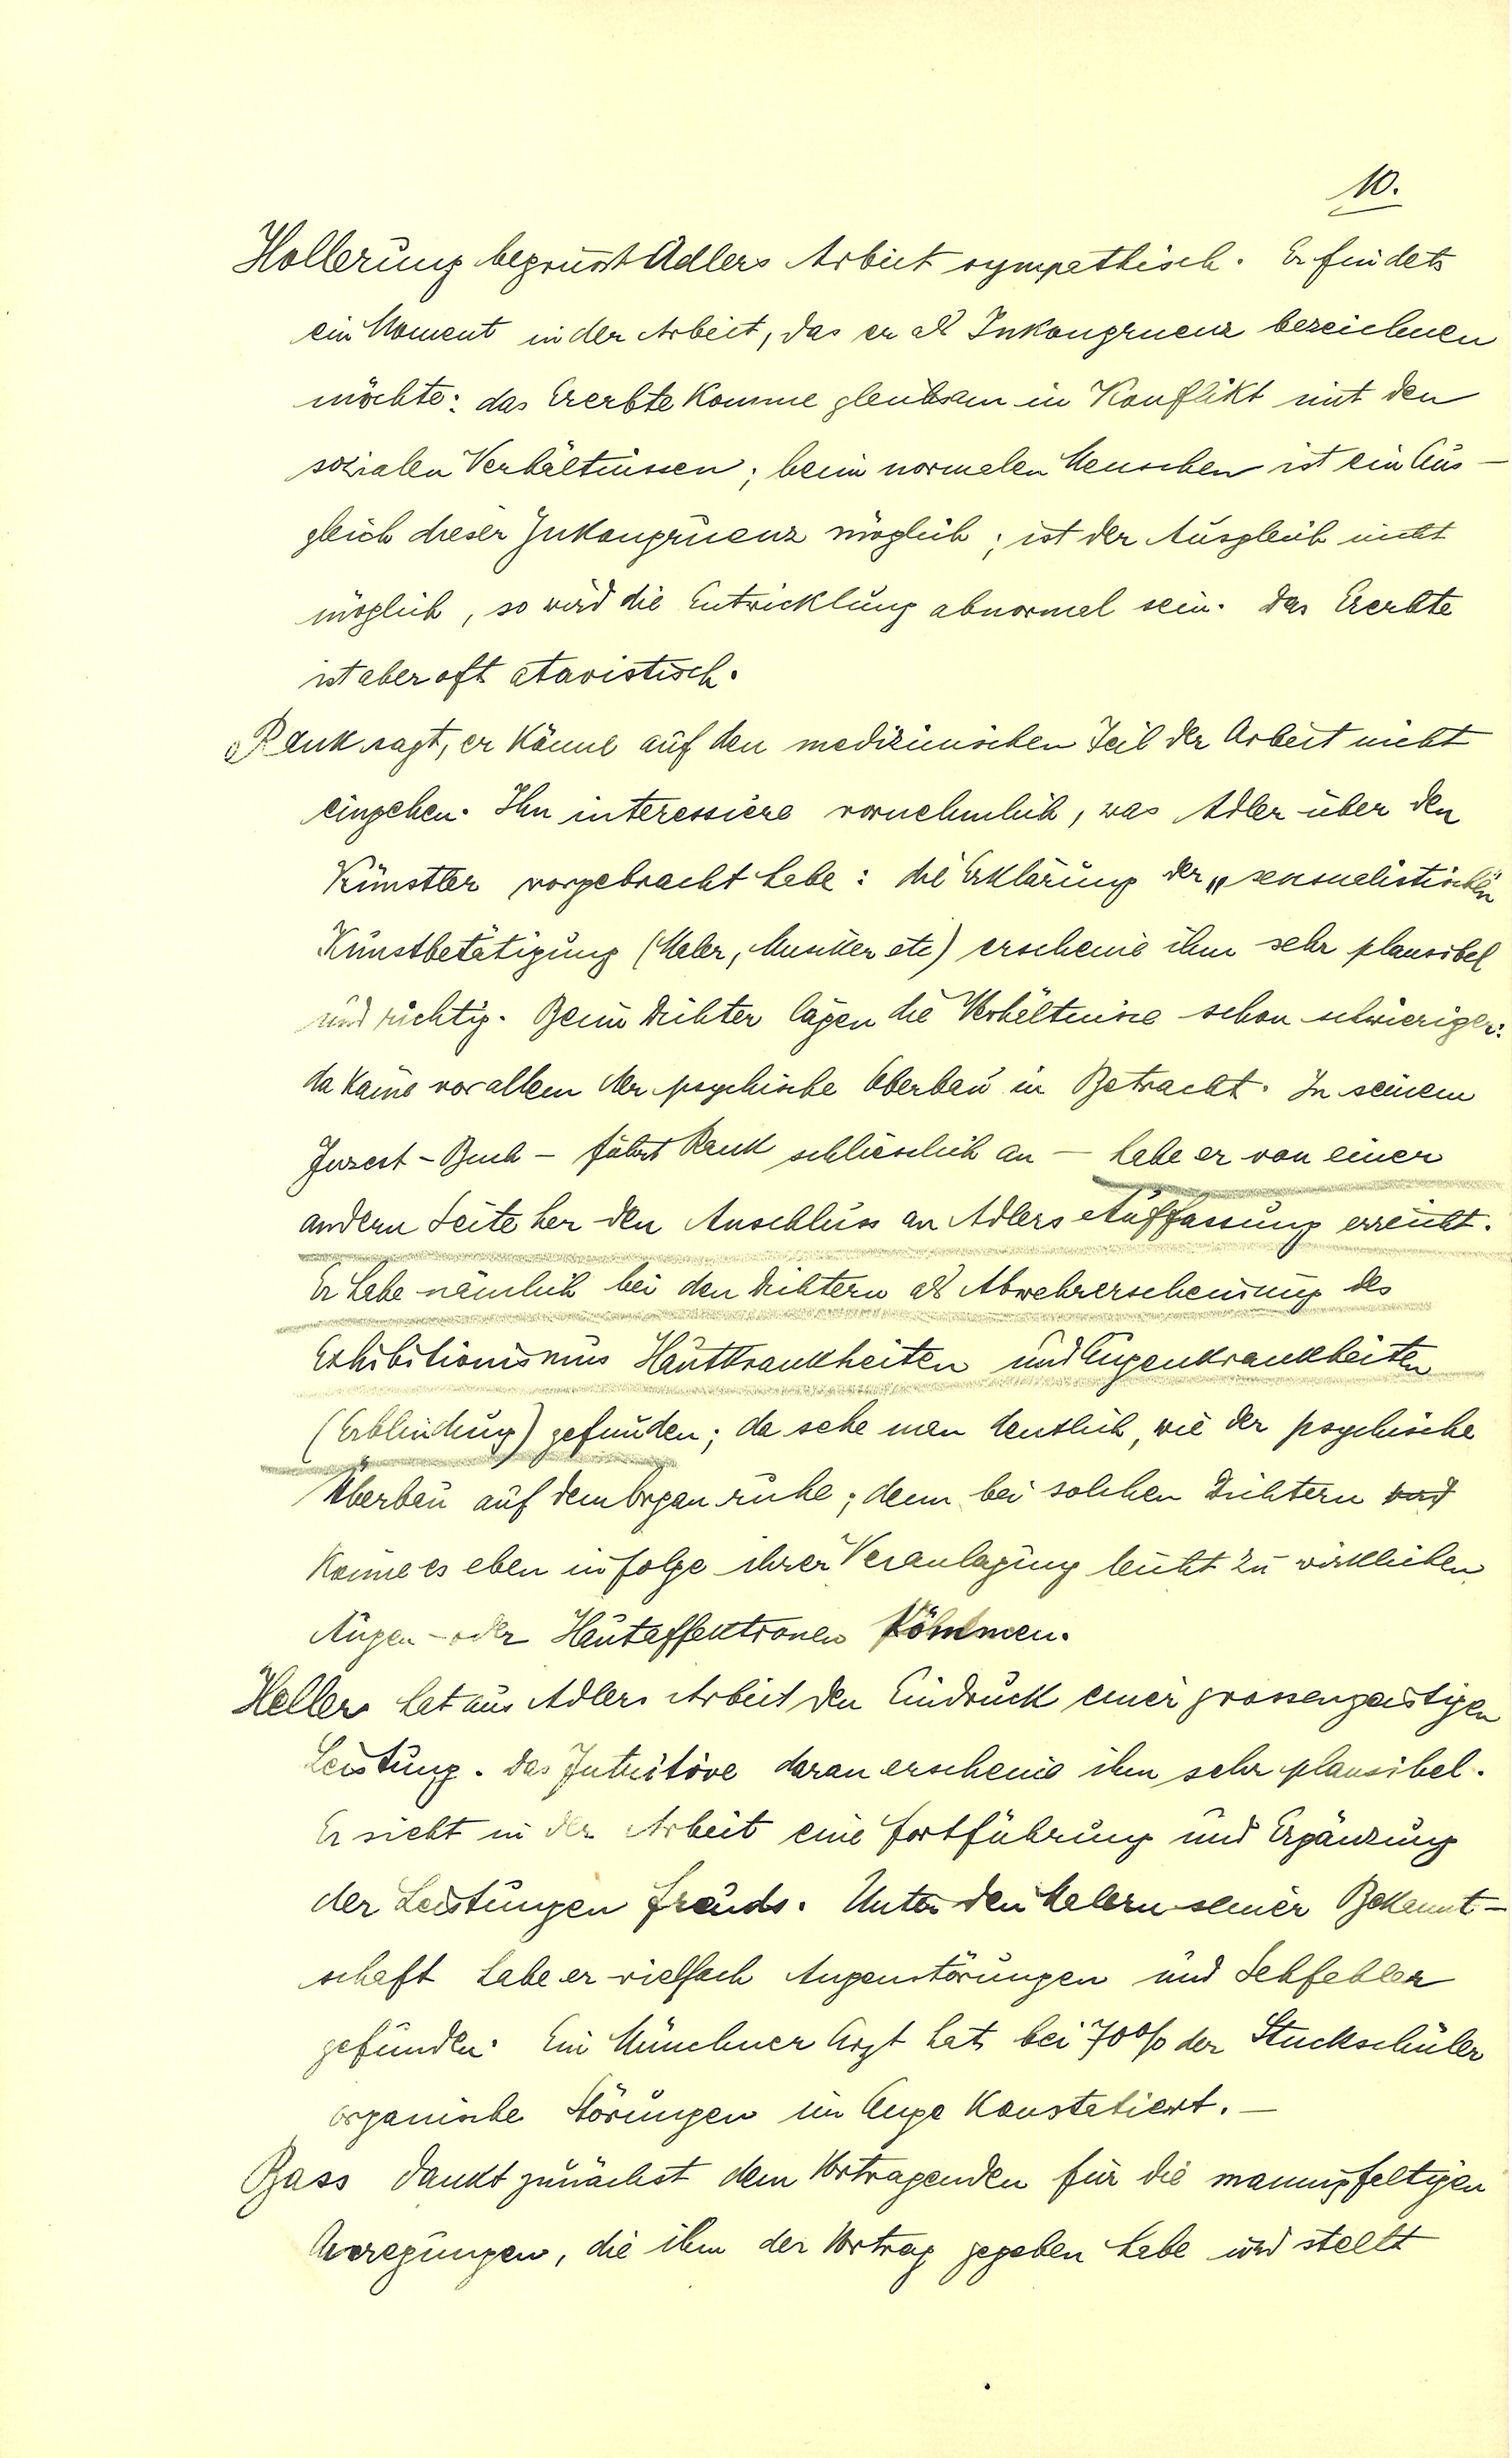 10.
Hollerung begrüsst Adlers Arbeit sympathisch. Er findet
ein Moment in der Arbeit, das er als Inkongruenz bezeichnen
möchte: das Ererbte komme gleichsam in Konflikt mit den
sozialen Verhältnissen; beim normalen Menschen ist ein Aus-
gleich dieser Inkongruenz möglich; ist der Ausgleich nicht
möglich, so wird die Entwicklung abnormal sein. Das Ererbte
ist aber oft atavistisch.
Rank sagt, er könne auf den medizinischen Teil der Arbeit nicht
eingehen. Ihn interessiere vornehmlich, was Adler über den
Künstler vorgebracht habe: die Erklärung der „sensualistischen"
Kunstbetätigung (Maler, Musiker etc) erscheine ihm sehr plausibel
und richtig. Beim Dichter lägen die Verhältnisse schon schwieriger:
da käme vor allem der psychische Oberbau in Betracht. In seinem
Inzest-Buch - führt Rank schliesslich an - habe er von einer
andern Seite her den Anschluss an Adlers Auffassung erreicht.
Er habe nämlich bei den Dichtern als Abwehrerscheinung des
Exhibitionismus Hautkrankheiten und Augenkrankheiten
(Erblindung) gefunden; da sehe man deutlich, wie der psychische
Überbau auf dem Organ ruhe; denn bei solchen Dichtern
könne es eben infolge ihrer Veranlagung leicht zu wirklichen
Augen- oder Hautaffektionen kommen.
Heller hat aus Adlers Arbeit den Eindruck einer grossen geistigen
Leistung. Das Intuitive daran erscheine ihm sehr plausibel.
Er sieht in der Arbeit eine Fortführung und Ergänzung
der Leistungen Freuds. Unter den Malern seiner Bekannt-
schaft habe er vielfach Augenstörungen und Sehfehler
gefunden. Ein Münchner Arzt hat bei 70% der Stuckschüler
organische Störungen im Auge konstatiert. -
Bass dankt zunächst dem Vortragenden für die mannigfaltigen
Anregungen, die ihm der Vortrag gegeben habe und stellt